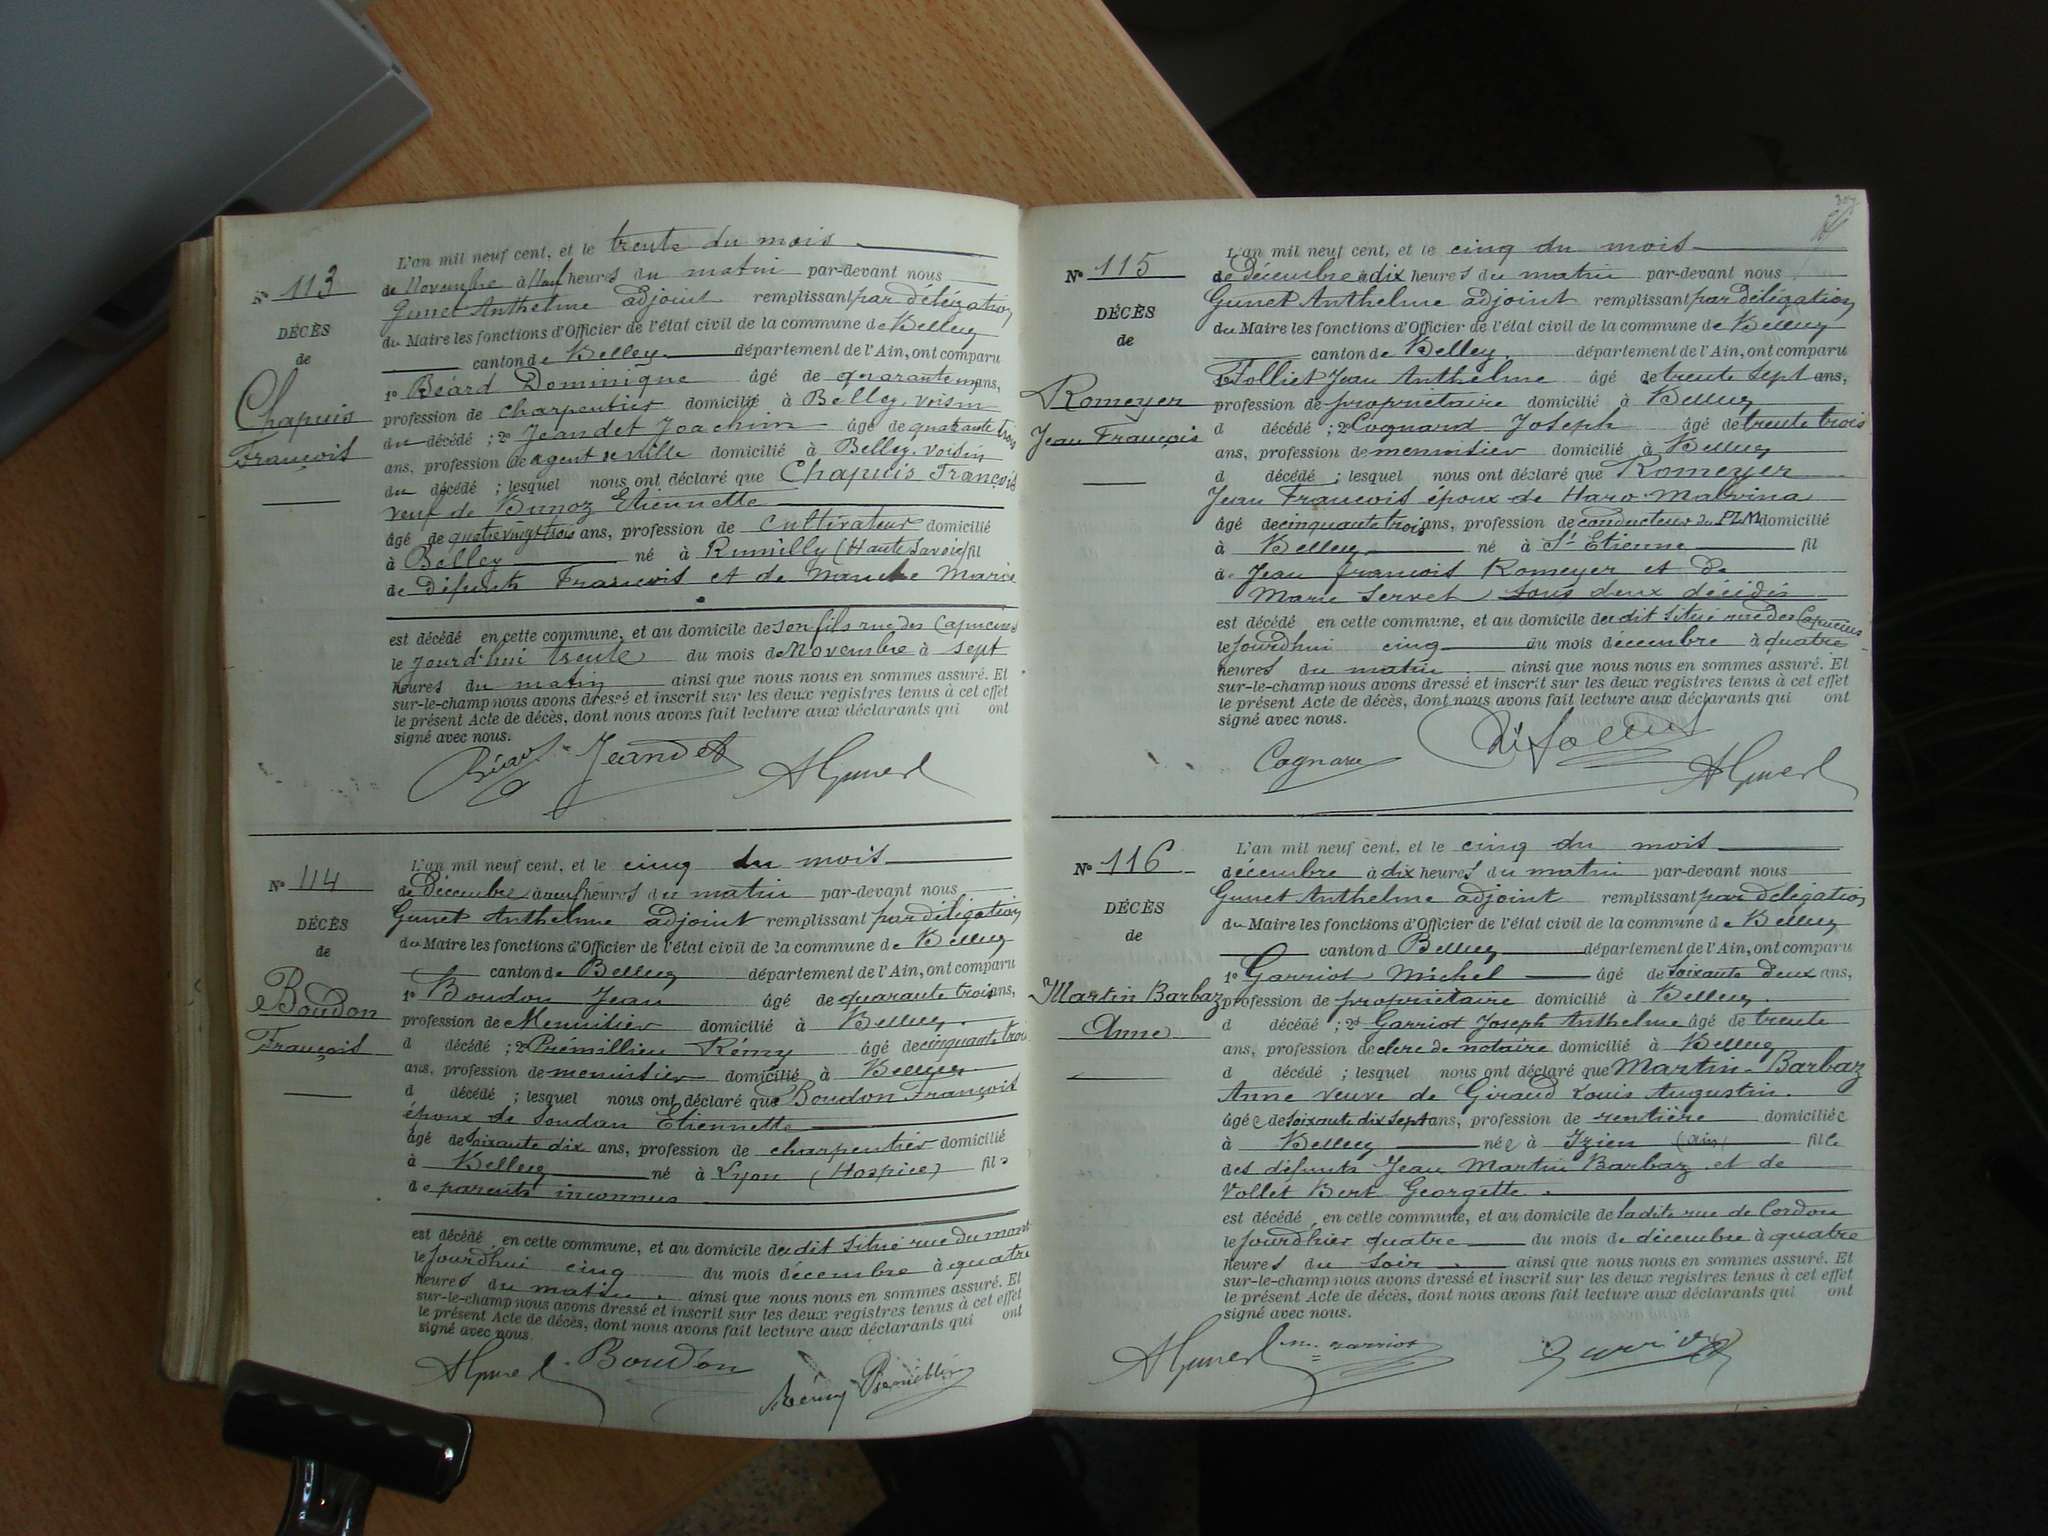 L'an mil neuf cent, et le trente du mois
Nº 113
de Novembre à neuf heures du matin par-devant nous
Gunet Anthelme adjoint remplissant par délégation
DÉCÈS
du Maire les fonctions d'Officier de l'état civil de la commune de Belley
de
canton de Belley département de l'Ain, ont comparu
Chapuis
François
1º Béard Dominique âgé de quarante ans,
profession de charpentier domicilié à Belley voisin
du décédé ; 2º Jeandet Joachim âgé de quarante trois
ans, profession de agent de ville domicilié à Belley voisin
du décédé ; lesquel nous ont déclaré que Chapuis François
veuf de Bunoz Etiennette
âgé de quatre vingt trois ans, profession de cultivateur domicilié
à Belley né à Rumilly (Haute Savoie) fil
de défunts François et de Manche Marie
est décédé en cette commune, et au domicile de son fils rue des Capucins
le jourd'hui trente du mois de Novembre à sept
heures du matin ainsi que nous nous en sommes assuré. Et
sur-le-champ nous avons dressé et inscrit sur les deux registres tenus à cet effet
le présent Acte de décès, dont nous avons fait lecture aux déclarants qui ont
signé avec nous.
Béard Jeandet AGunet
L'an mil neuf cent, et le cinq du mois
Nº 114
de Décembre à neuf heures du matin par-devant nous
Gunet Anthelme adjoint remplissant par délégation
DÉCÈS
du Maire les fonctions d'Officier de l'état civil de la commune de Belley
de
canton de Belley département de l'Ain, ont comparu
Boudon
François
1º Boudon Jean âgé de quarante trois ans,
profession de Menuisier domicilié à Belley
d décédé ; 2º Prémillieu Rémy âgé de cinquante trois
ans, profession de menuisier domicilié à Belley
d décédé ; lesquel nous ont déclaré que Boudon François
époux de Soudan Etiennette
âgé de soixante dix ans, profession de charpentier domicilié
à Belley né à Lyon (Hospice) fils
de parents inconnus
est décédé en cette commune, et au domicile du dit situé rue du mont
le jourdhui cinq du mois décembre à quatre
heures du matin. ainsi que nous nous en sommes assuré. Et
sur-le-champ nous avons dressé et inscrit sur les deux registres tenus à cet effet
le présent Acte de décès, dont nous avons fait lecture aux déclarants qui ont
signé avec nous.
AGunet Boudon Rémy Prémillieu
L'an mil neuf cent, et le cinq du mois
Nº 115
de décembre à dix heures du matin par-devant nous
Gunet Anthelme adjoint remplissant par délégation
DÉCÈS
du Maire les fonctions d'Officier de l'état civil de la commune de Belley
de
canton de Belley département de l'Ain, ont comparu
Romeyer
Jean François
1º Folliet Jean Anthelme âgé de trente sept ans,
profession de propriétaire domicilié à Belley
d décédé ; 2º Cognard Joseph âgé de trente trois
ans, profession de menuisier domicilié à Belley
d décédé ; lesquel nous ont déclaré que Romeyer
Jean François époux de Haro Malvina
âgé de cinquante trois ans, profession de conducteur du PLM domicilié
à Belley né à St Etienne fil
de Jean François Romeyer et de
Marie Servet tous deux décédés
est décédé en cette commune, et au domicile du dit situé rue des Capucins
le jourdhui cinq du mois décembre à quatre
heures du matin ainsi que nous nous en sommes assuré. Et
sur-le-champ nous avons dressé et inscrit sur les deux registres tenus à cet effet
le présent Acte de décès, dont nous avons fait lecture aux déclarants qui ont
signé avec nous.
Cognard AGunet
L'an mil neuf cent, et le cinq du mois
Nº 116
décembre à dix heures du matin par-devant nous
Gunet Anthelme adjoint remplissant par délégation
DÉCÈS
du Maire les fonctions d'Officier de l'état civil de la commune d Belley
de
canton d Belley département de l'Ain, ont comparu
Martin Barbaz
Anne
1º Garriot Michel âgé de soixante deux ans,
profession de propriétaire domicilié à Belley
d décédé ; 2º Garriot Joseph Anthelme âgé de trente
ans, profession de clerc de notaire domicilié à Belley
d décédé ; lesquel nous ont déclaré que Martin-Barbaz
Anne veuve de Giraud Louis Augustin.
âgée de soixante dix sept ans, profession de rentière domiciliée
à Belley née à Izieu (ain) fille
des défunts Jean Martin Barbaz et de
Vollet Bert Georgette.
est décédé en cette commune, et au domicile de ladite rue de Cordon
le jourdhier quatre du mois de décembre à quatre
heures du soir ainsi que nous nous en sommes assuré. Et
sur-le-champ nous avons dressé et inscrit sur les deux registres tenus à cet effet
le présent Acte de décès, dont nous avons fait lecture aux déclarants qui ont
signé avec nous.
AGunet m. garriot